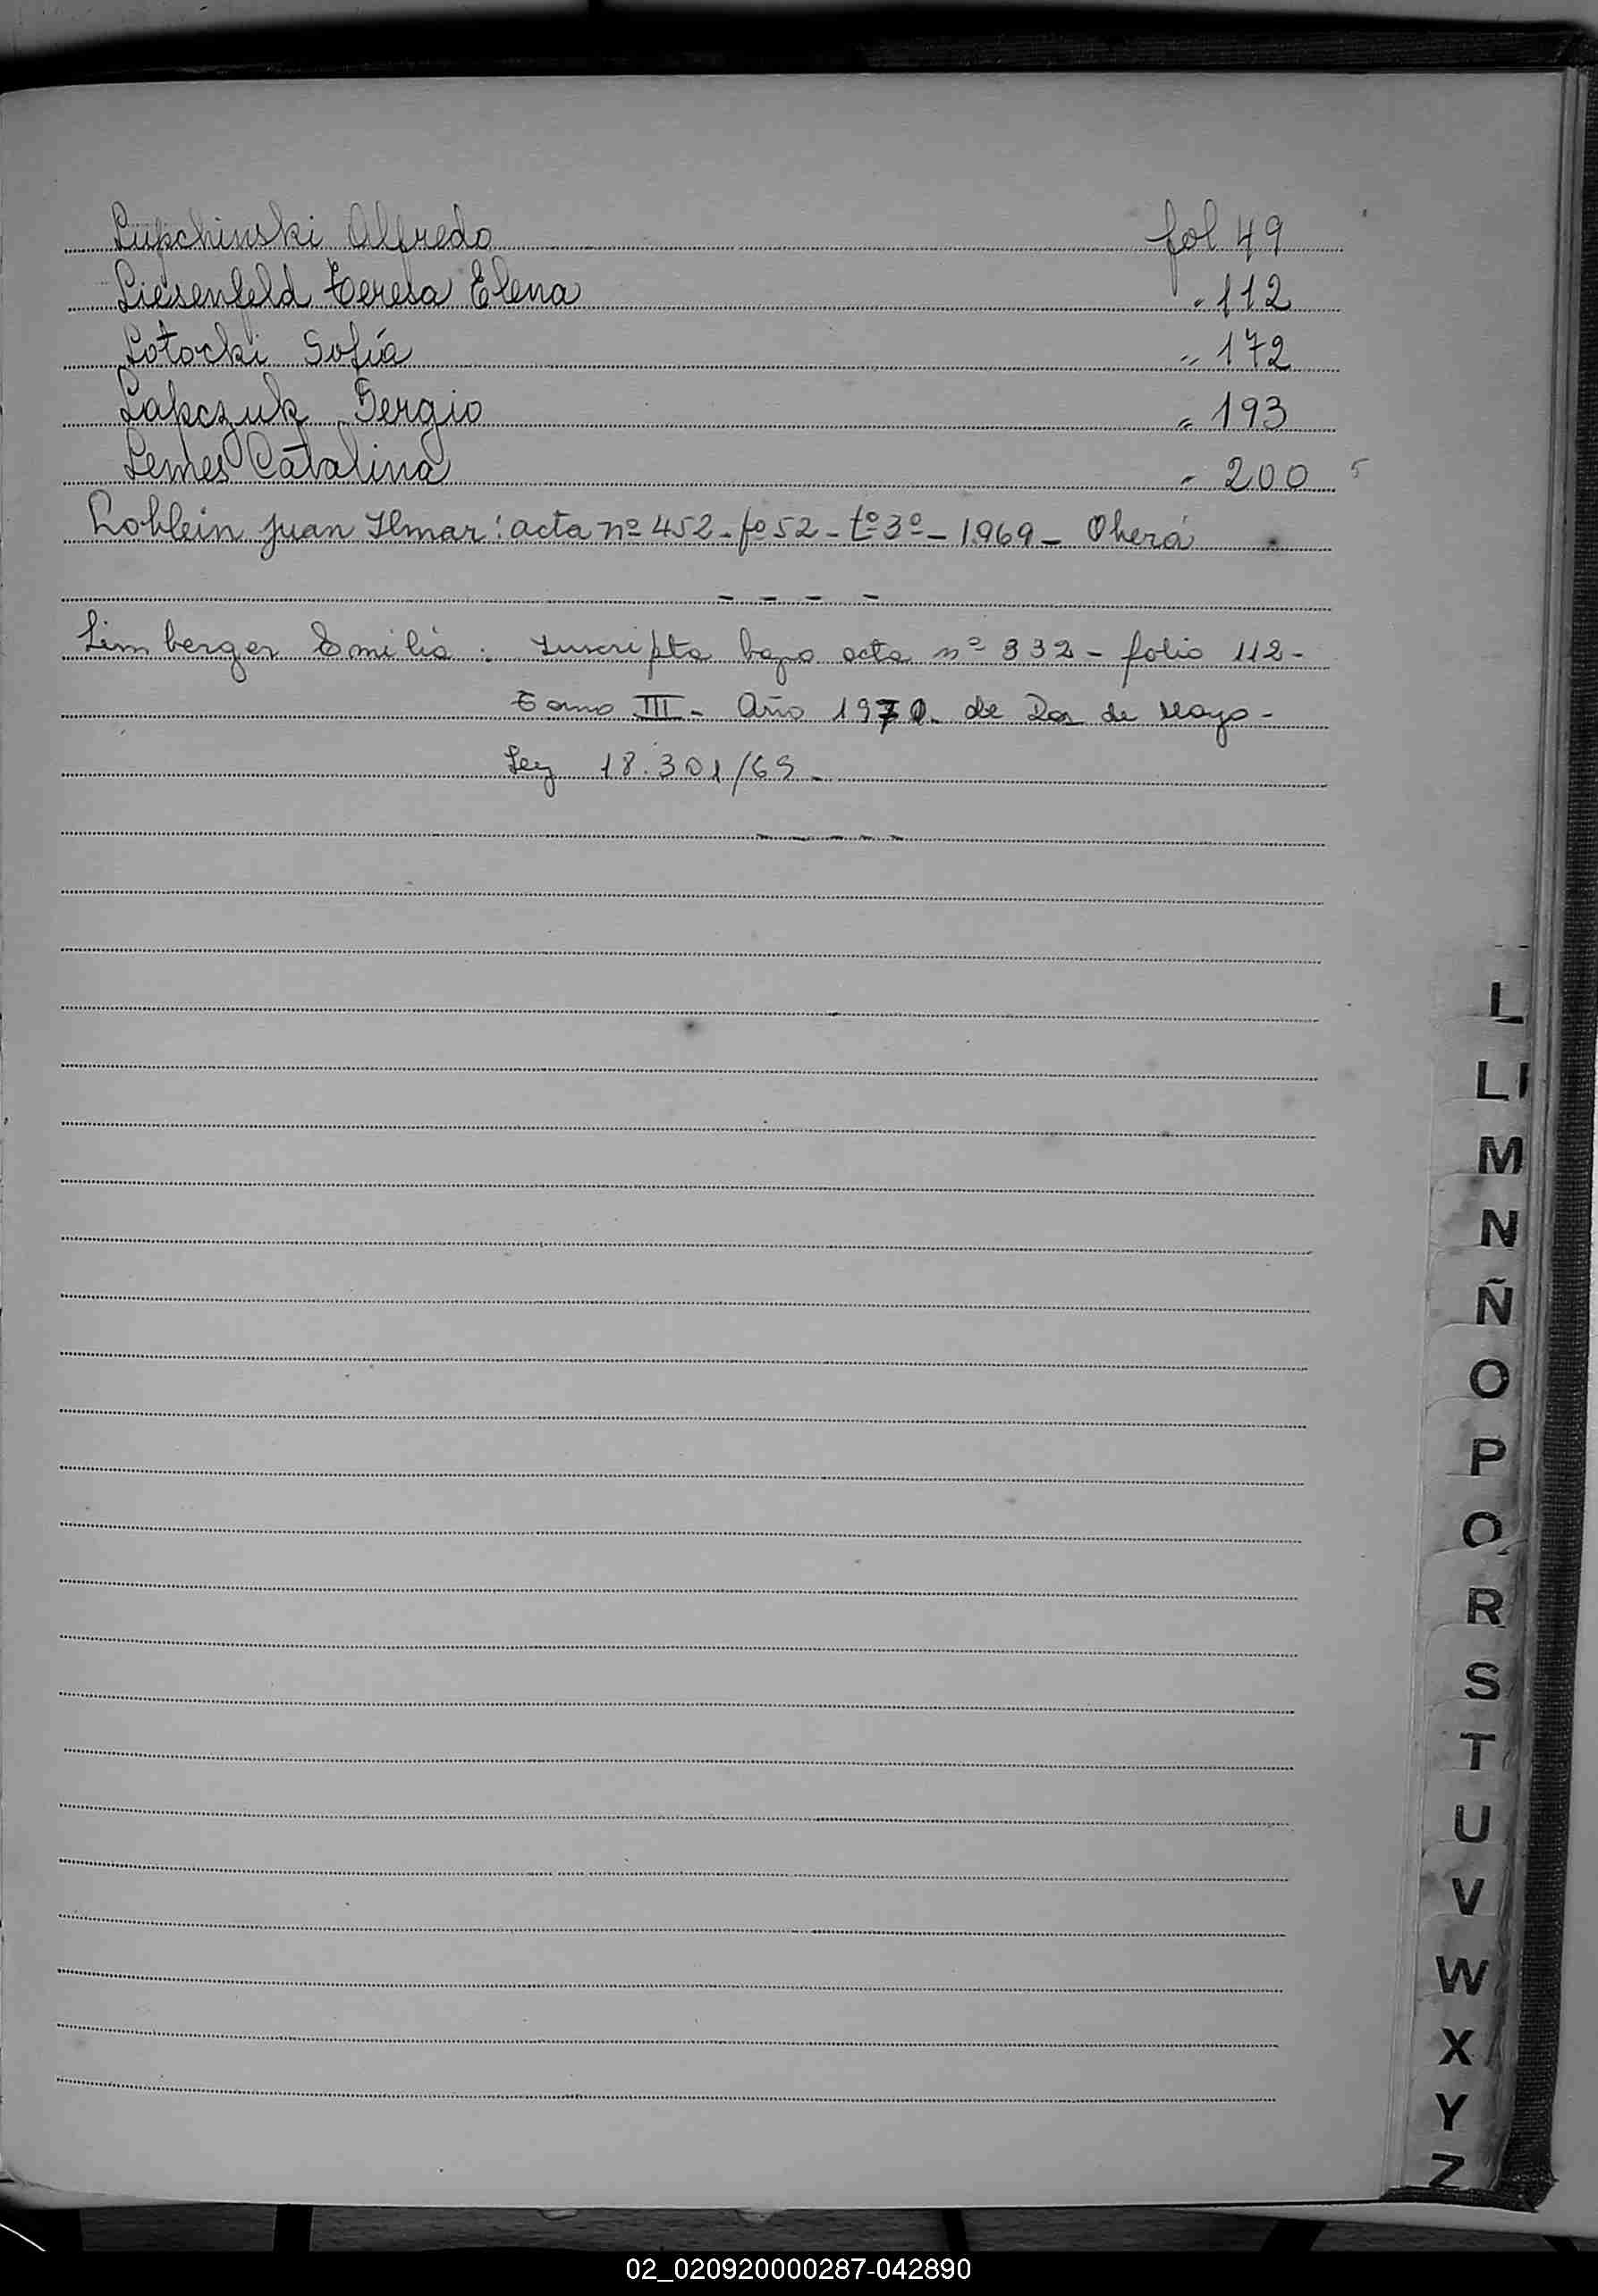 Lupchinski Alfredo fol 49
Liesenfeld Teresa Elena " 112
Lotocki Sofía " 172
Lapczuk Sergio " 193
Lemes Catalina " 200
Loblein Juan Ilmar: acta nº 452 - fº 52 - tº 3º - 1969 - Oberá
- - - -
Limberger Emilia : Inscripta bajo acta nº 332 - folio 112 -
Tomo III - Año 1970. de Dos de Mayo -
Ley 18.301/69 -
L
Ll
M
N
Ñ
O
P
Q
R
S
T
U
V
W
X
Y
Z
02_020920000287-042890